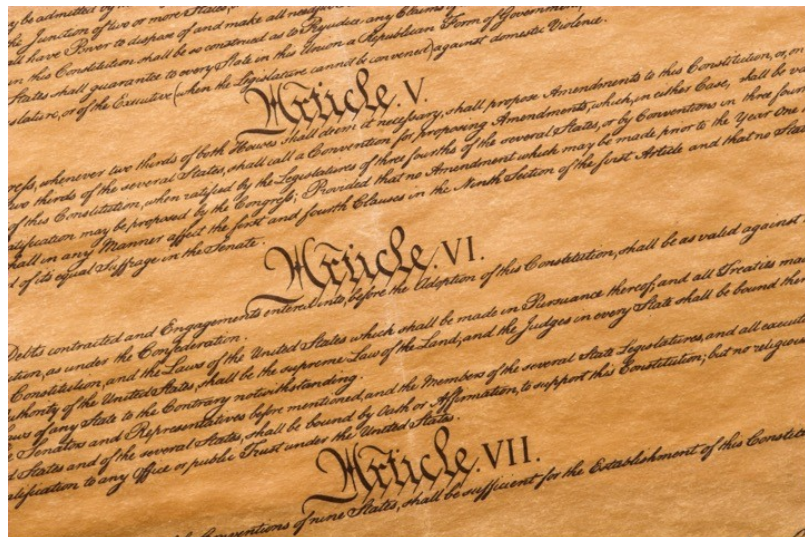 be admitted by
the Junction of two or more States,
all have Power to dispose of and make all needful
in this Constitution shall be so construed as to Prejudice any Claims of
States shall guarantee to every State in this Union a Republican Form of Government,
islature, or of the Executive (when the Legislature cannot be convened) against domestic Violence.
Article. V.
gress, whenever two thirds of both Houses shall deem it necessary, shall propose Amendments to this Constitution, or, on
wo thirds of the several States, shall call a Convention for proposing Amendments, which, in either Case, shall be va
of this Constitution, when ratified by the Legislatures of three fourths of the several States, or by Conventions in three four
atification may be proposed by the Congress; Provided that no Amendment which may be made prior to the Year One
hall in any Manner affect the first and fourth Clauses in the Ninth Section of the first Article and that no State
d of its equal Suffrage in the Senate.
Article. VI.
Debts contracted and Engagements entered into, before the Adoption of this Constitution, shall be as valid against
ution, as under the Confederation.
Constitution, and the Laws of the United States which shall be made in Pursuance thereof; and all Treaties mad
uthority of the United States, shall be the supreme Law of the Land; and the Judges in every State shall be bound ther
aws of any State to the Contrary notwithstanding.
e Senators and Representatives before mentioned, and the Members of the several State Legislatures, and all execut
d States and of the several States, shall be bound by Oath or Affirmation, to support this Constitution; but no religious
alification to any Office or public Trust under the United States.
Article. VII.
Conventions of nine States, shall be sufficient for the Establishment of this Constitu